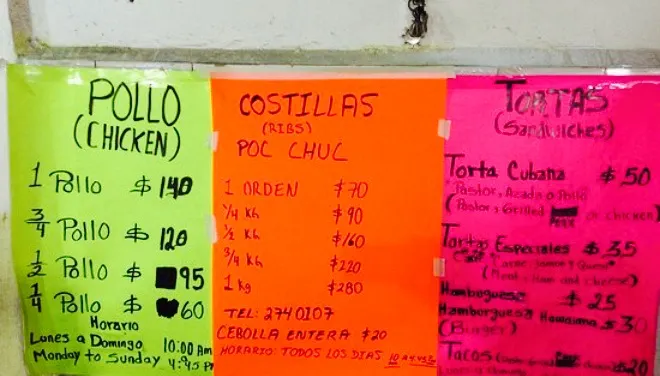 POLLO
(CHICKEN)
1 Pollo $ 140
3/4 Pollo $ 120
1/2 Pollo $ 95
1/4 Pollo $ 60
Horario
Lunes a Domingo 10:00 Am
Monday to Sunday 4:45 P
COSTILLAS
(RIBS)
POC CHUC
1 ORDEN $70
1/4 KG $90
1/2 KG $160
3/4 KG $220
1 Kg $280
TEL: 2740107
CEBOLLA ENTERA $20
HORARIO: TODOS LOS DIAS 10 A
TORTAS
(Sandwiches)
Torta Cubana $50
Pastor, Asada o Pollo
(Pastor, Grilled or chicken)
Tortas Especiales $35
Carne, Jamon y Queso
(Meat, Ham and cheese)
Hamburguesa $25
Hamburguesa Hawaiana $30
(Burger)
Tacos $20